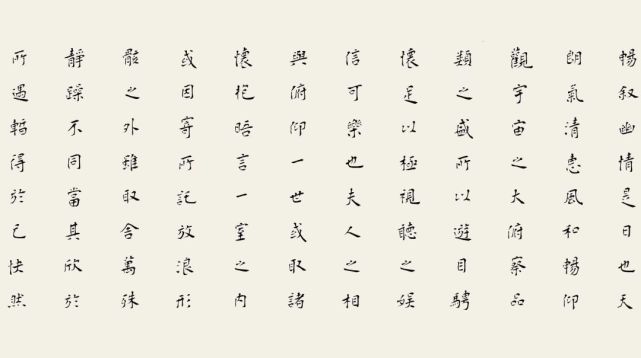 暢叙幽情是日也天
朗氣清惠風和暢仰
觀宇宙之大俯察品
類之盛所以遊目騁
懷足以極視聽之娛
信可樂也夫人之相
與俯仰一世或取諸
懷抱晤言一室之内
或因寄所託放浪形
骸之外雖取舍萬殊
靜躁不同當其欣於
所遇暫得於己快然